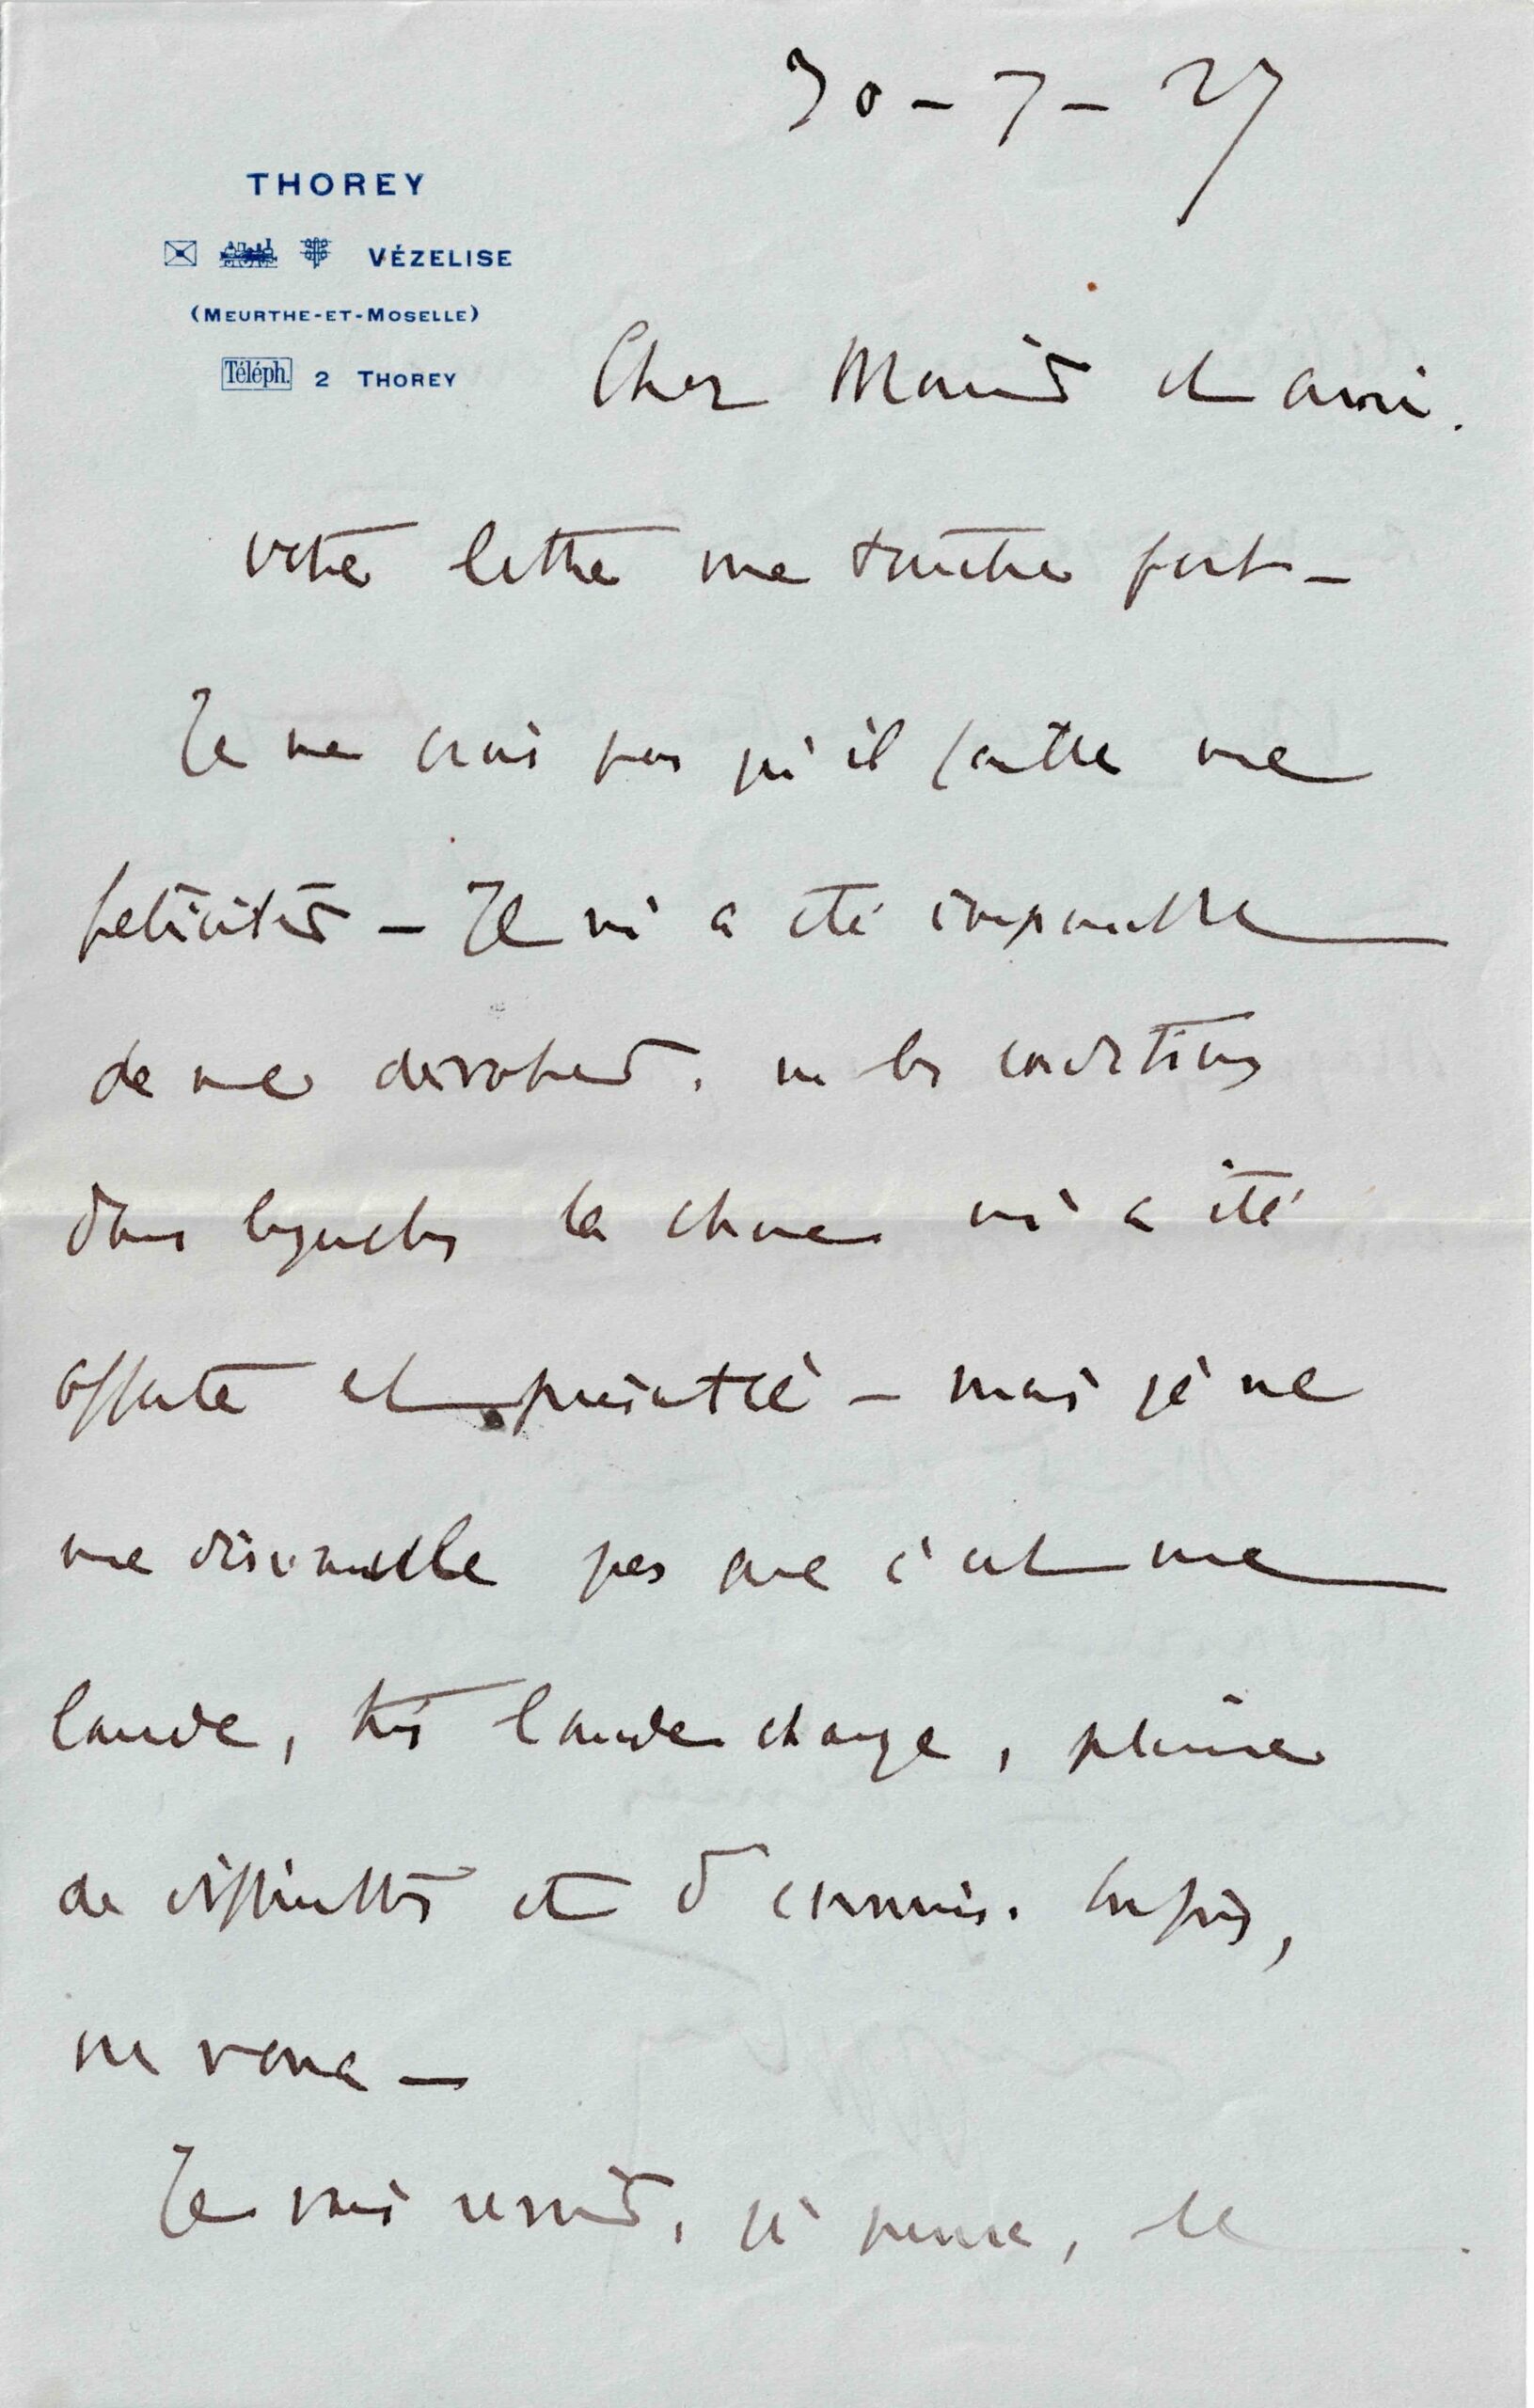 30-7-27
THOREY
VÉZELISE
(MEURTHE-ET-MOSELLE)
Téléph. 2 THOREY
Cher Mauris et ami.
votre lettre me touche fort -
Je ne crois pas qu'il faille me
feliciter - Il m'a été impossible
de me dérober, vu les conditions
dans lesquelles la chose m'a été
offerte et présentée - mais je ne
me dissimule pas que c'est une
lourde, très lourde charge, pleine
de difficultés et d'ennuis. Enfin,
on verra -
Je vais venir, je pense, le